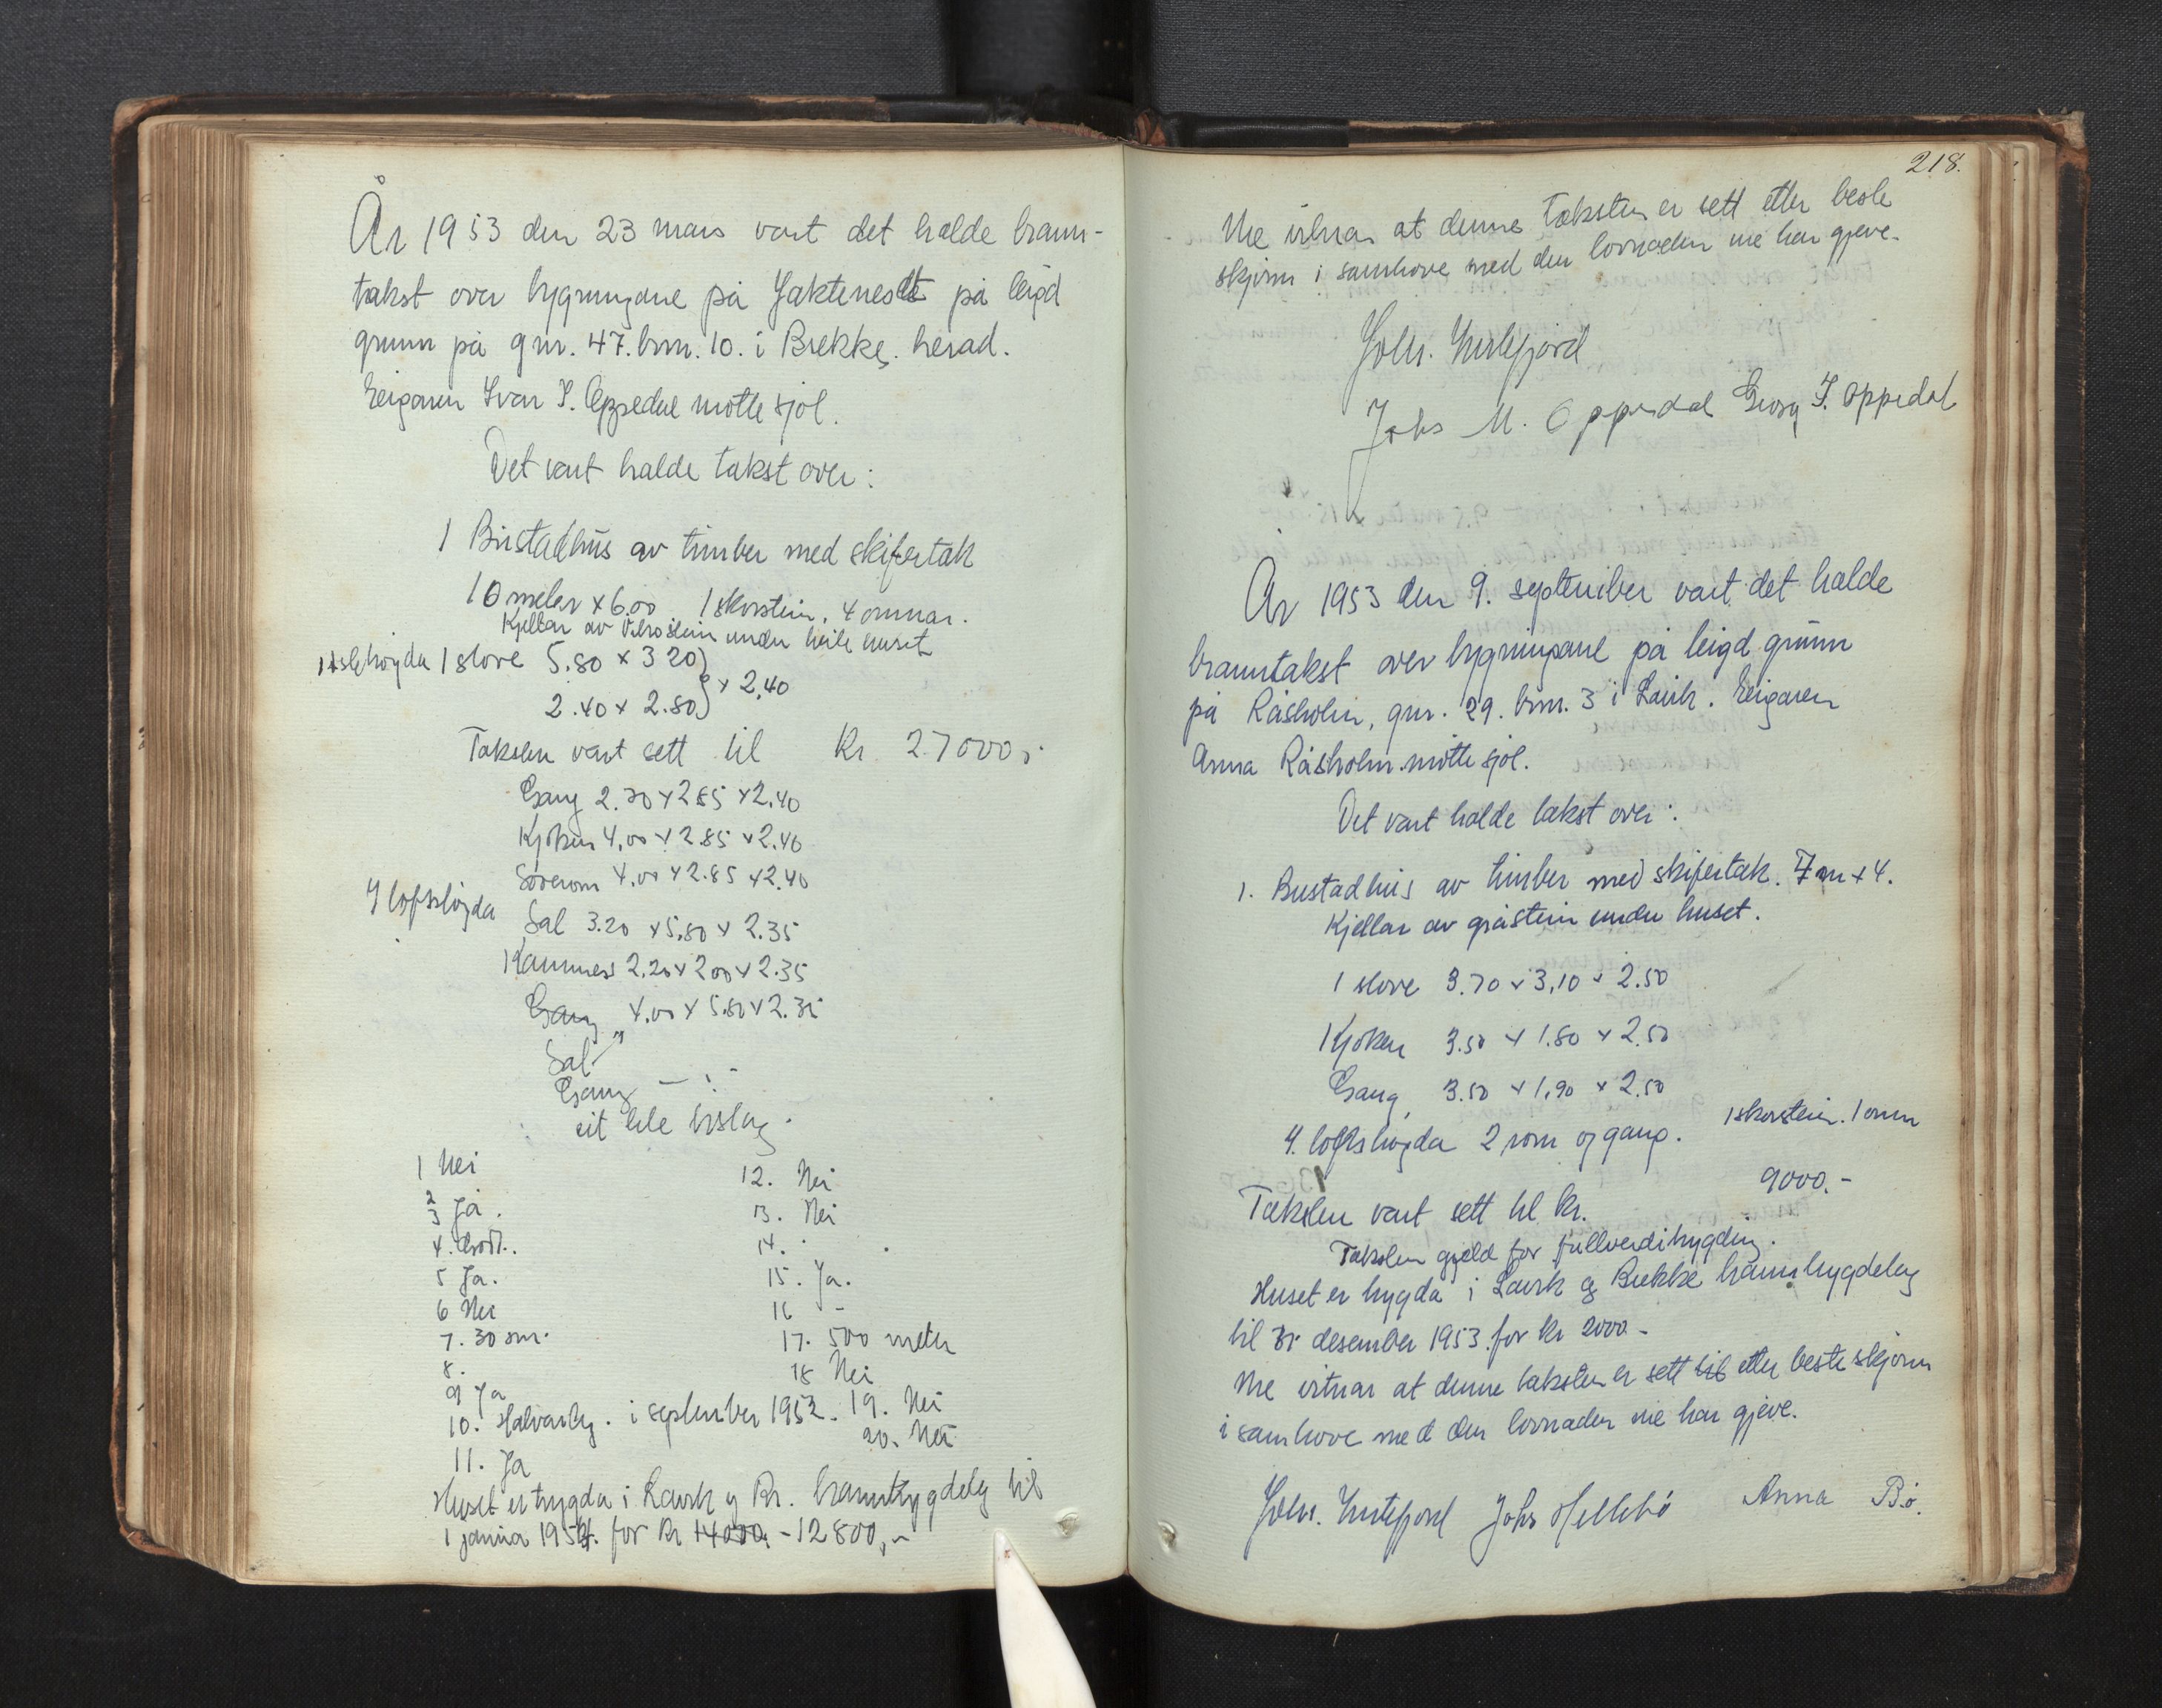 År 1953 den 23 mars vart det halde brann-
takst over bygningane på Jakteneset på leigd
grunn på gnr. 47. brn. 10. i Brekke. herad.
Eigaren Ivar I. Oppedal møtte sjøl.
Det vart halde takst over:
1 Bustadhus av timber med skifertak
10 meter x 6.00 1 skorstein, 4 omnar.
Kjellar av under heile huset
1 stove 5.80 x 3 20
2.40 x 2.80 } x 2,40
Taksten vart sett til Kr. 27000,-
Gang 2.70 x 2.85 x 2.40
Kjøken 4,00 x 2.85 x 2.40
Soverom 4.00 x 2.85 x 2.40
I loftshøgda
Sal 3.20 x 5,80 x 2.35
Kammers 2,20 x 200 x 2.35
Gang 4.00 x 5.80 x 2.35
Sal — "
Gang — " —
eit lite bislag.
1 Nei
2
3 Ja.
4. Godt.
5 Ja.
6 Nei
7. 30 sm.
8.
9 Ja
10. i september 1952.
11. Ja
12. Nei
13. Nei
14. -
15. Ja.
16 -
17. 500 meter
18 Nei
19. Nei
20. Nei
Huset er trygda i Lavik og Br. branntrygdelag til
1 januar 1954. for kr 14000. - 12800,-
218.
Me vitnar at denne taksten er sett etter beste
skjønn i samhøve med den lovnaden me har gjeve.
Johs M. Oppedal Georg I. Oppedal
År 1953 den 9. september vart det halde
branntakst over bygningane på leigd grunn
på Råsholm, gnr. 29. brn. 3 i Lavik. Eigaren
Anna Råsholm møtte sjøl.
Det vart halde takst over:
1. Bustadhus av timber med skifertak. 7 m x 4.
Kjellar av gråstein under huset.
1 stove 3.70 x 3,10 x 2.50
1 Kjøken 3.50 x 1.80 x 2.50
Gang 3.50 x 1,90 x 2.50
I. loftshøgda 2 rom og gang. 1 skorstein. 1 omn
Taksten vart sett til kr. 9000.-
Taksten gjeld for fullverditrygding.
Huset er trygda i Lavik og Brekke branntrygdelag
til 31 desember 1953 for kr 2000-
Me vitnar at denne taksten er sett til etter beste skjønn
i samhøve med den lovnaden me har gjeve.
Johs Hellebø Anna Bø.